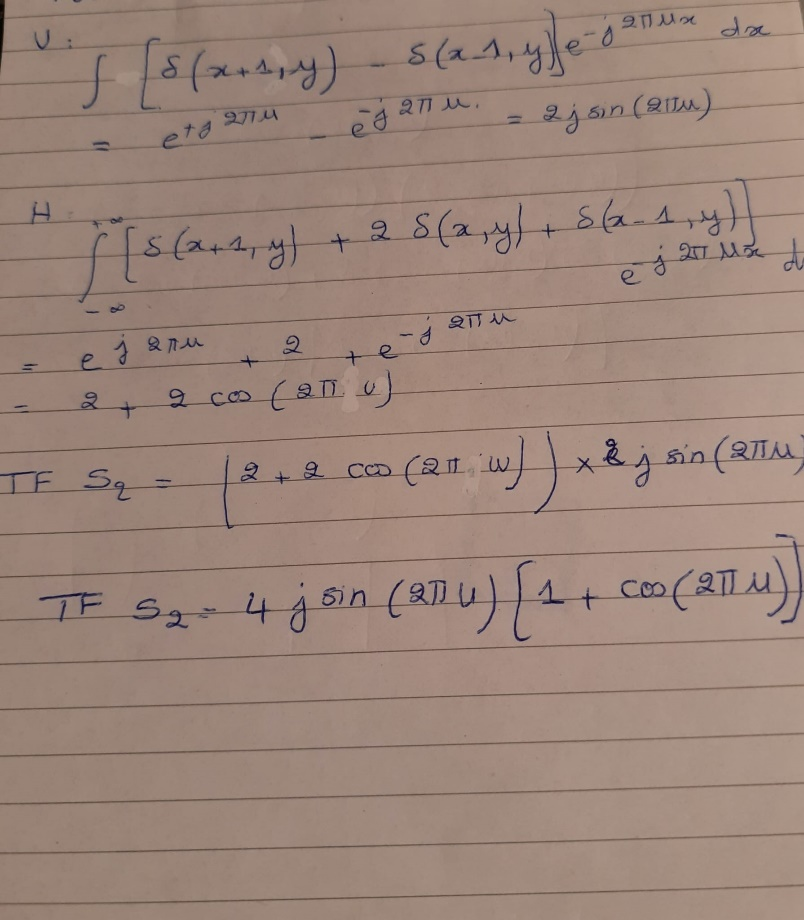 V :
∫ [δ(x+1,y) - δ(x-1,y)] e^{-j2πux} dx
= e^{+j2πu} - e^{-j2πu} = 2j sin(2πu)
H
∫_{-∞}^{+∞} [δ(x+1,y) + 2 δ(x,y) + δ(x-1,y)]
e^{-j2πux} d
= e^{j2πu} + 2 + e^{-j2πu}
= 2 + 2 cos(2πu)
TF S_2 = (2 + 2 cos(2πu)) × 2j sin(2πu)
TF S_2 = 4 j sin(2πu) [1 + cos(2πu)]